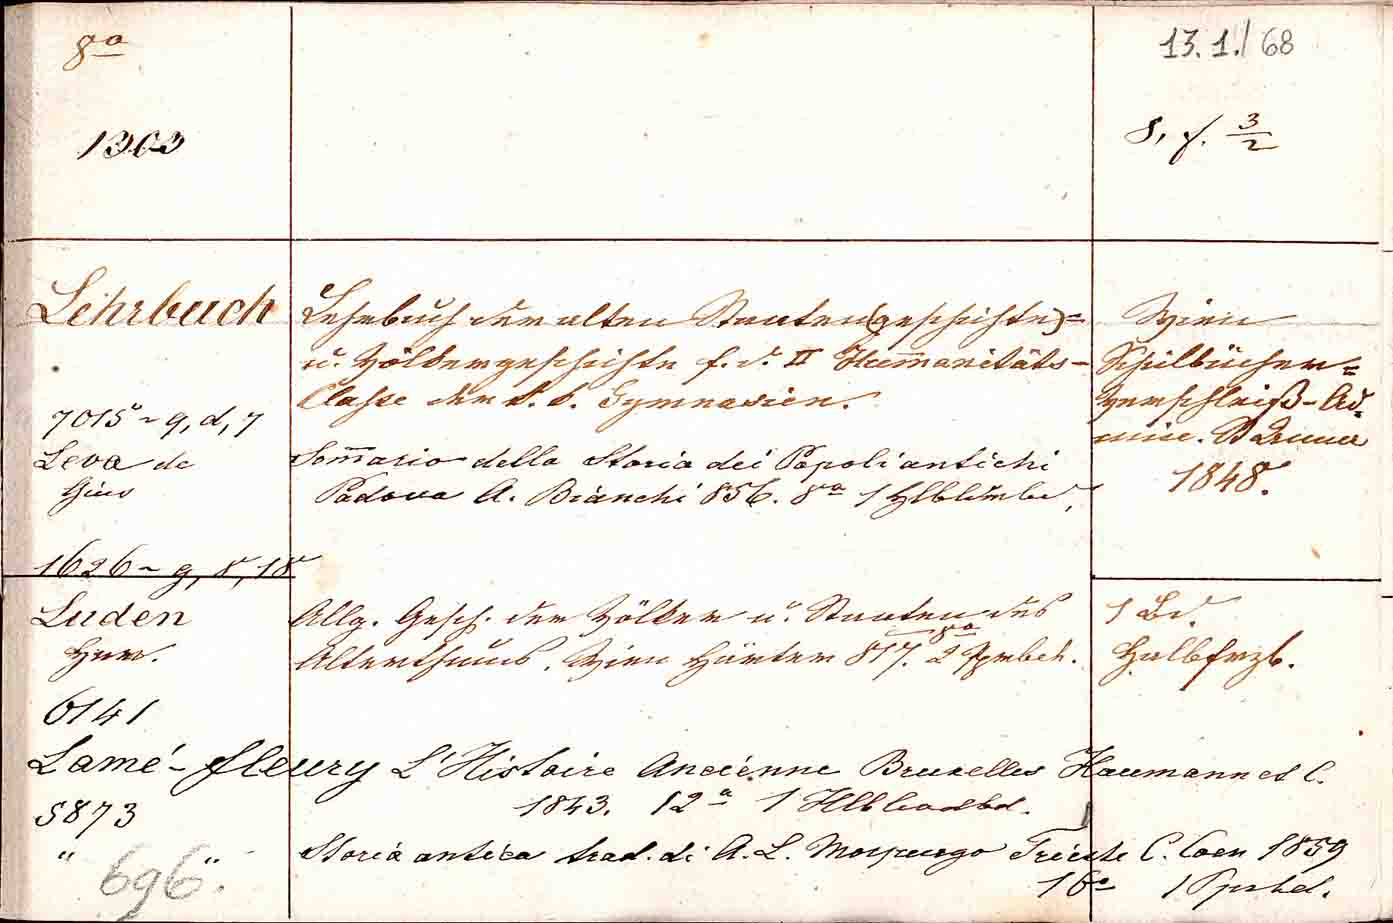 8º
13. 1. / 68
1303
8, f. 3/2
Lehrbuch
Lehrbuch der alten Staaten(geschichte)=
u. Völkergeschichte f. d. II Hum̄anitäts-
Classe der k. k. Gymnasien.
Wien
Schulbücher=
verschleiß-Ad=
1848.
7015 ~ g, d, 7
Leva de
Gius
Som̄ario della Storia dei Popoli antichi
Padova A. Bianchi 856. 8º 1 Hlblwbd,
1626 ~ g, 8, 18
Luden
Hnr.
Allg. Gesch. der Völker u. Staaten des
Alterthums. Wien Härter 817. 8º 2 Ppbch.
1 Bd.
Halbfrzb.
6141
Lamé-fleury L'Histoire Anciénne Bruxelles Haumann et C.
1843. 12º 1 Hlblwdbd.
5873
" " Storia antica trad. di A. L. Morpurgo Trieste C. Coen 1859
16º 1 Ppbd.
696.